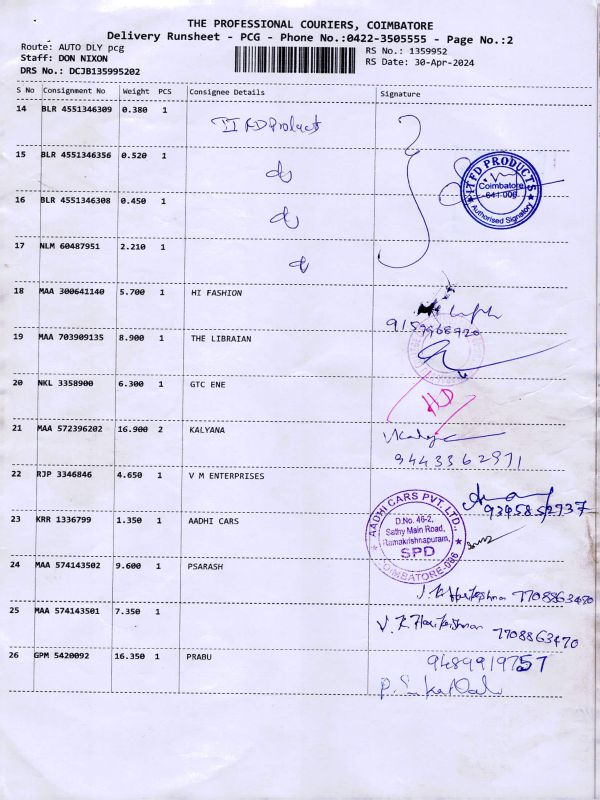 THE PROFESSIONAL COURIERS, COIMBATORE
Delivery Runsheet - PCG - Phone No.:0422-3505555 - Page No.:2
Route: AUTO DLY pcg
RS No.: 1359952
Staff: DON NIXON
RS Date: 30-Apr-2024
DRS No.: DCJB135995202
S No Consignment No Weight PCS Consignee Details Signature
14 BLR 4551346309 0.380 1
II FD Product
15 BLR 4551346356 0.520 1
do
ITFD PRODUCTS
Coimbatore
641 006
Authorised Signatory
16 BLR 4551346308 0.450 1
do
17 NLM 60487951 2.210 1
do
18 MAA 300641140 5.700 1 HI FASHION
9159968920
19 MAA 703909135 8.900 1 THE LIBRAIAN
20 NKL 3358900 6.300 1 GTC ENE
HD
21 MAA 572396202 16.900 2 KALYANA
9443362971
22 RJP 3346846 4.650 1 V M ENTERPRISES
23 KRR 1336799 1.350 1 AADHI CARS
AADHI CARS PVT. LTD.,
D.No. 46-2,
Sathy Main Road,
Ramakrishnapuram,
SPD
COIMBATORE-006
24 MAA 574143502 9.600 1 PSARASH
7708863470
25 MAA 574143501 7.350 1
V. K Harikrishnan 7708863470
26 GPM 5420092 16.350 1 PRABU
9489919757